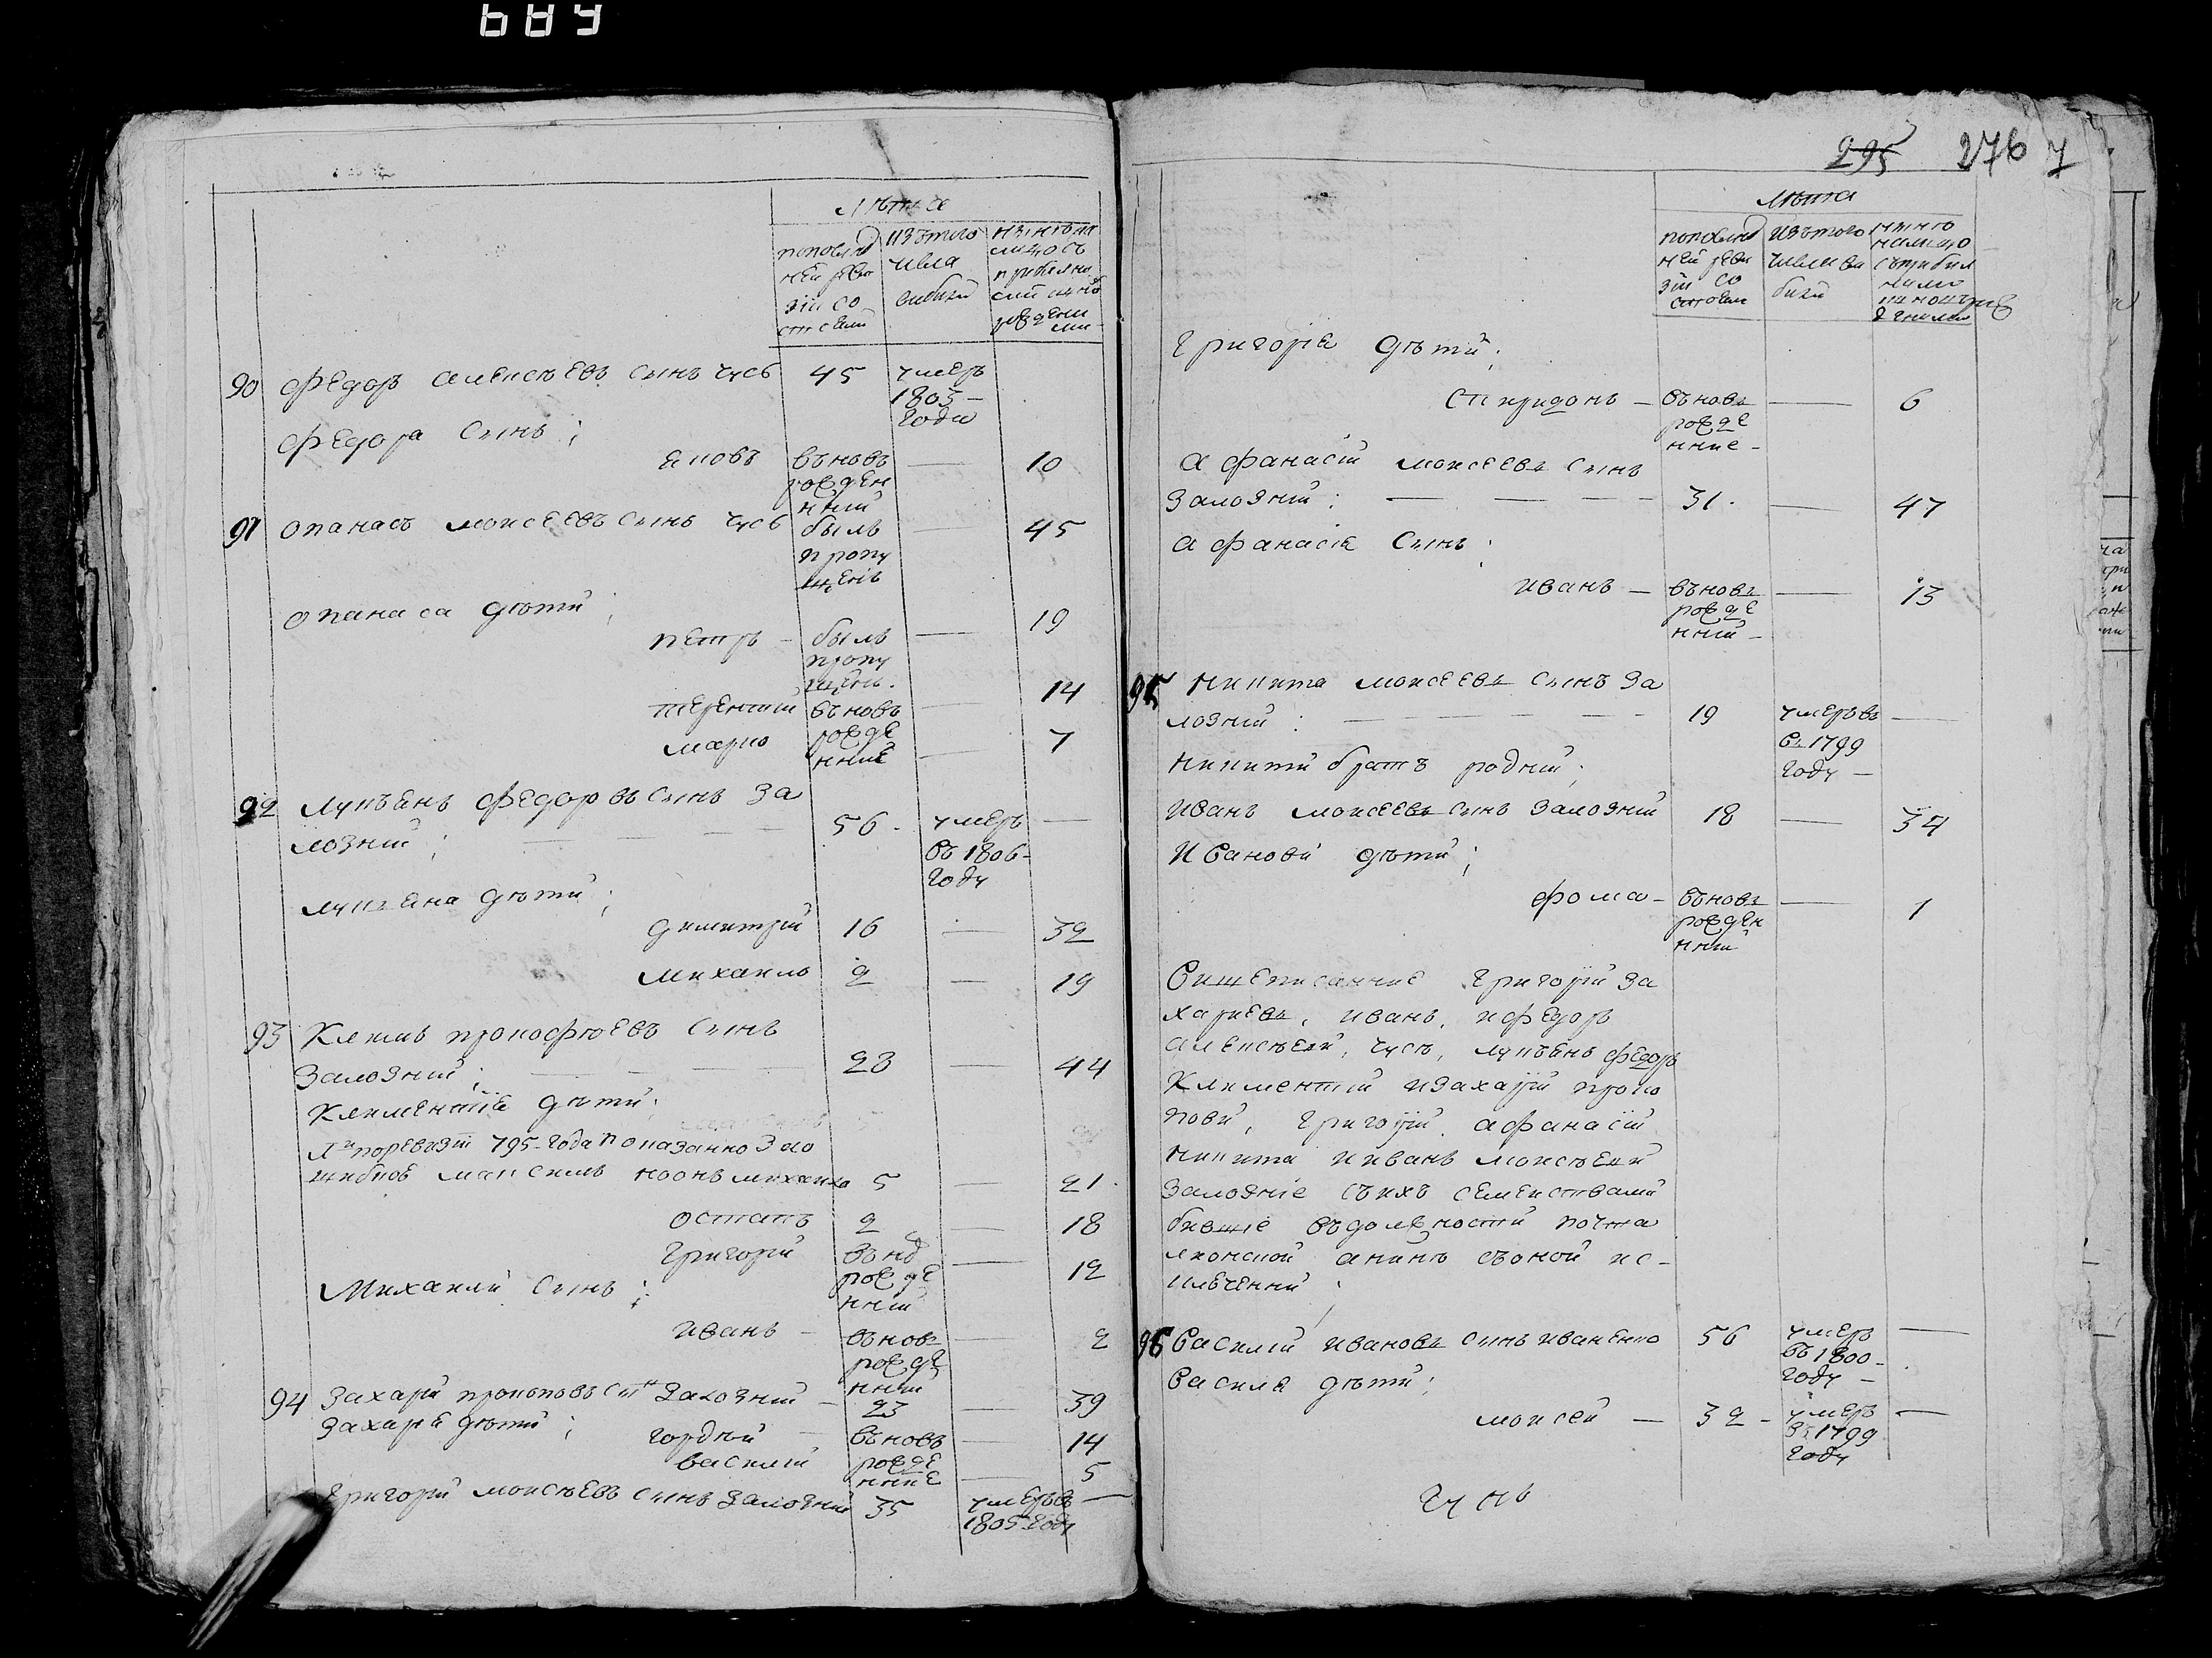 689
лѣта
попослѣд
ней реви
зіи со
стояли
изътого
числа
вибили
нынѣ на
лицо съ
рожденни
ми
90 Федоръ алексѣевъ сынъ гусь 45 умеръ
1805 -
года
Федора сынъ;
яковъ въновъ — 10
рожден
нний
91 опанасъ моисеевъ сынъ гусь былъ — 45
пропу
щенъ
опанаса дѣти;
петръ — былъ — 19
пропу
щенъ.
терентий въновъ — 14
марко рожде — 7
нние
92 лукъянъ федоровъ сынъ за
лозний; — 56. умеръ —
въ 1806-
году
лукъяна дѣти;
димитрий 16 — 32
михаило 2 — 19
93 Климъ прокофіевъ сынъ
Залозний; — 28 — 44
Климентія дѣти;
795 года показанно
максимъ ноонъ михаило 5 — 21.
остапъ 2 — 18
григорий въно — 12
рожде
нний
Михаили сынъ;
иванъ — въновъ — 2
рожде
нний
94 Захарий прокоповъ снъ Залозний — 23 — 39
Захаря дѣти; гордѣй — въновъ — 14
василий рожде — 5
нние
григорий моисѣевъ сынъ залозний 35 умеръ въ —
1805 году
295 276 7
лѣта
попослѣд
ней реви
зіи со
стояли
изътого
числа ви
били
нынѣ
налицо
съприбил
ними
григорія дѣти;
спиридонъ — въновъ — 6
рожде
нние —
афанасій моисеевъ сынъ
Залозний; — 31. — 47
афанасія сынъ;
иванъ — въновъ — 13
рожде
нний —
95 никита моисеевъ сынъ за
лозний: — 19 умеръ въ —
въ 1799
году —
никити братъ родний;
иванъ моисеевъ сынъ залозний 18 — 34
ивана дѣти;
фома — въновъ — 1
рожден
нний
Вишеписанние григорий за
хариевъ, иванъ, ифедоръ
алексѣеви, гусѣ, лукъянъ федоръ
климентий изахарий проко
пови, григорий, афанасій
никита ииванъ моисѣеви
залозніе съихъ семействами
бившіе въдолжности почта
ліонской анинѣ съоной ис-
ключенни;
96 Василий ивановъ сынъ иваненко 56 умеръ —
въ 1800-
году —
Василя дѣти;
моисей — 32 - умеръ —
въ 1799
году